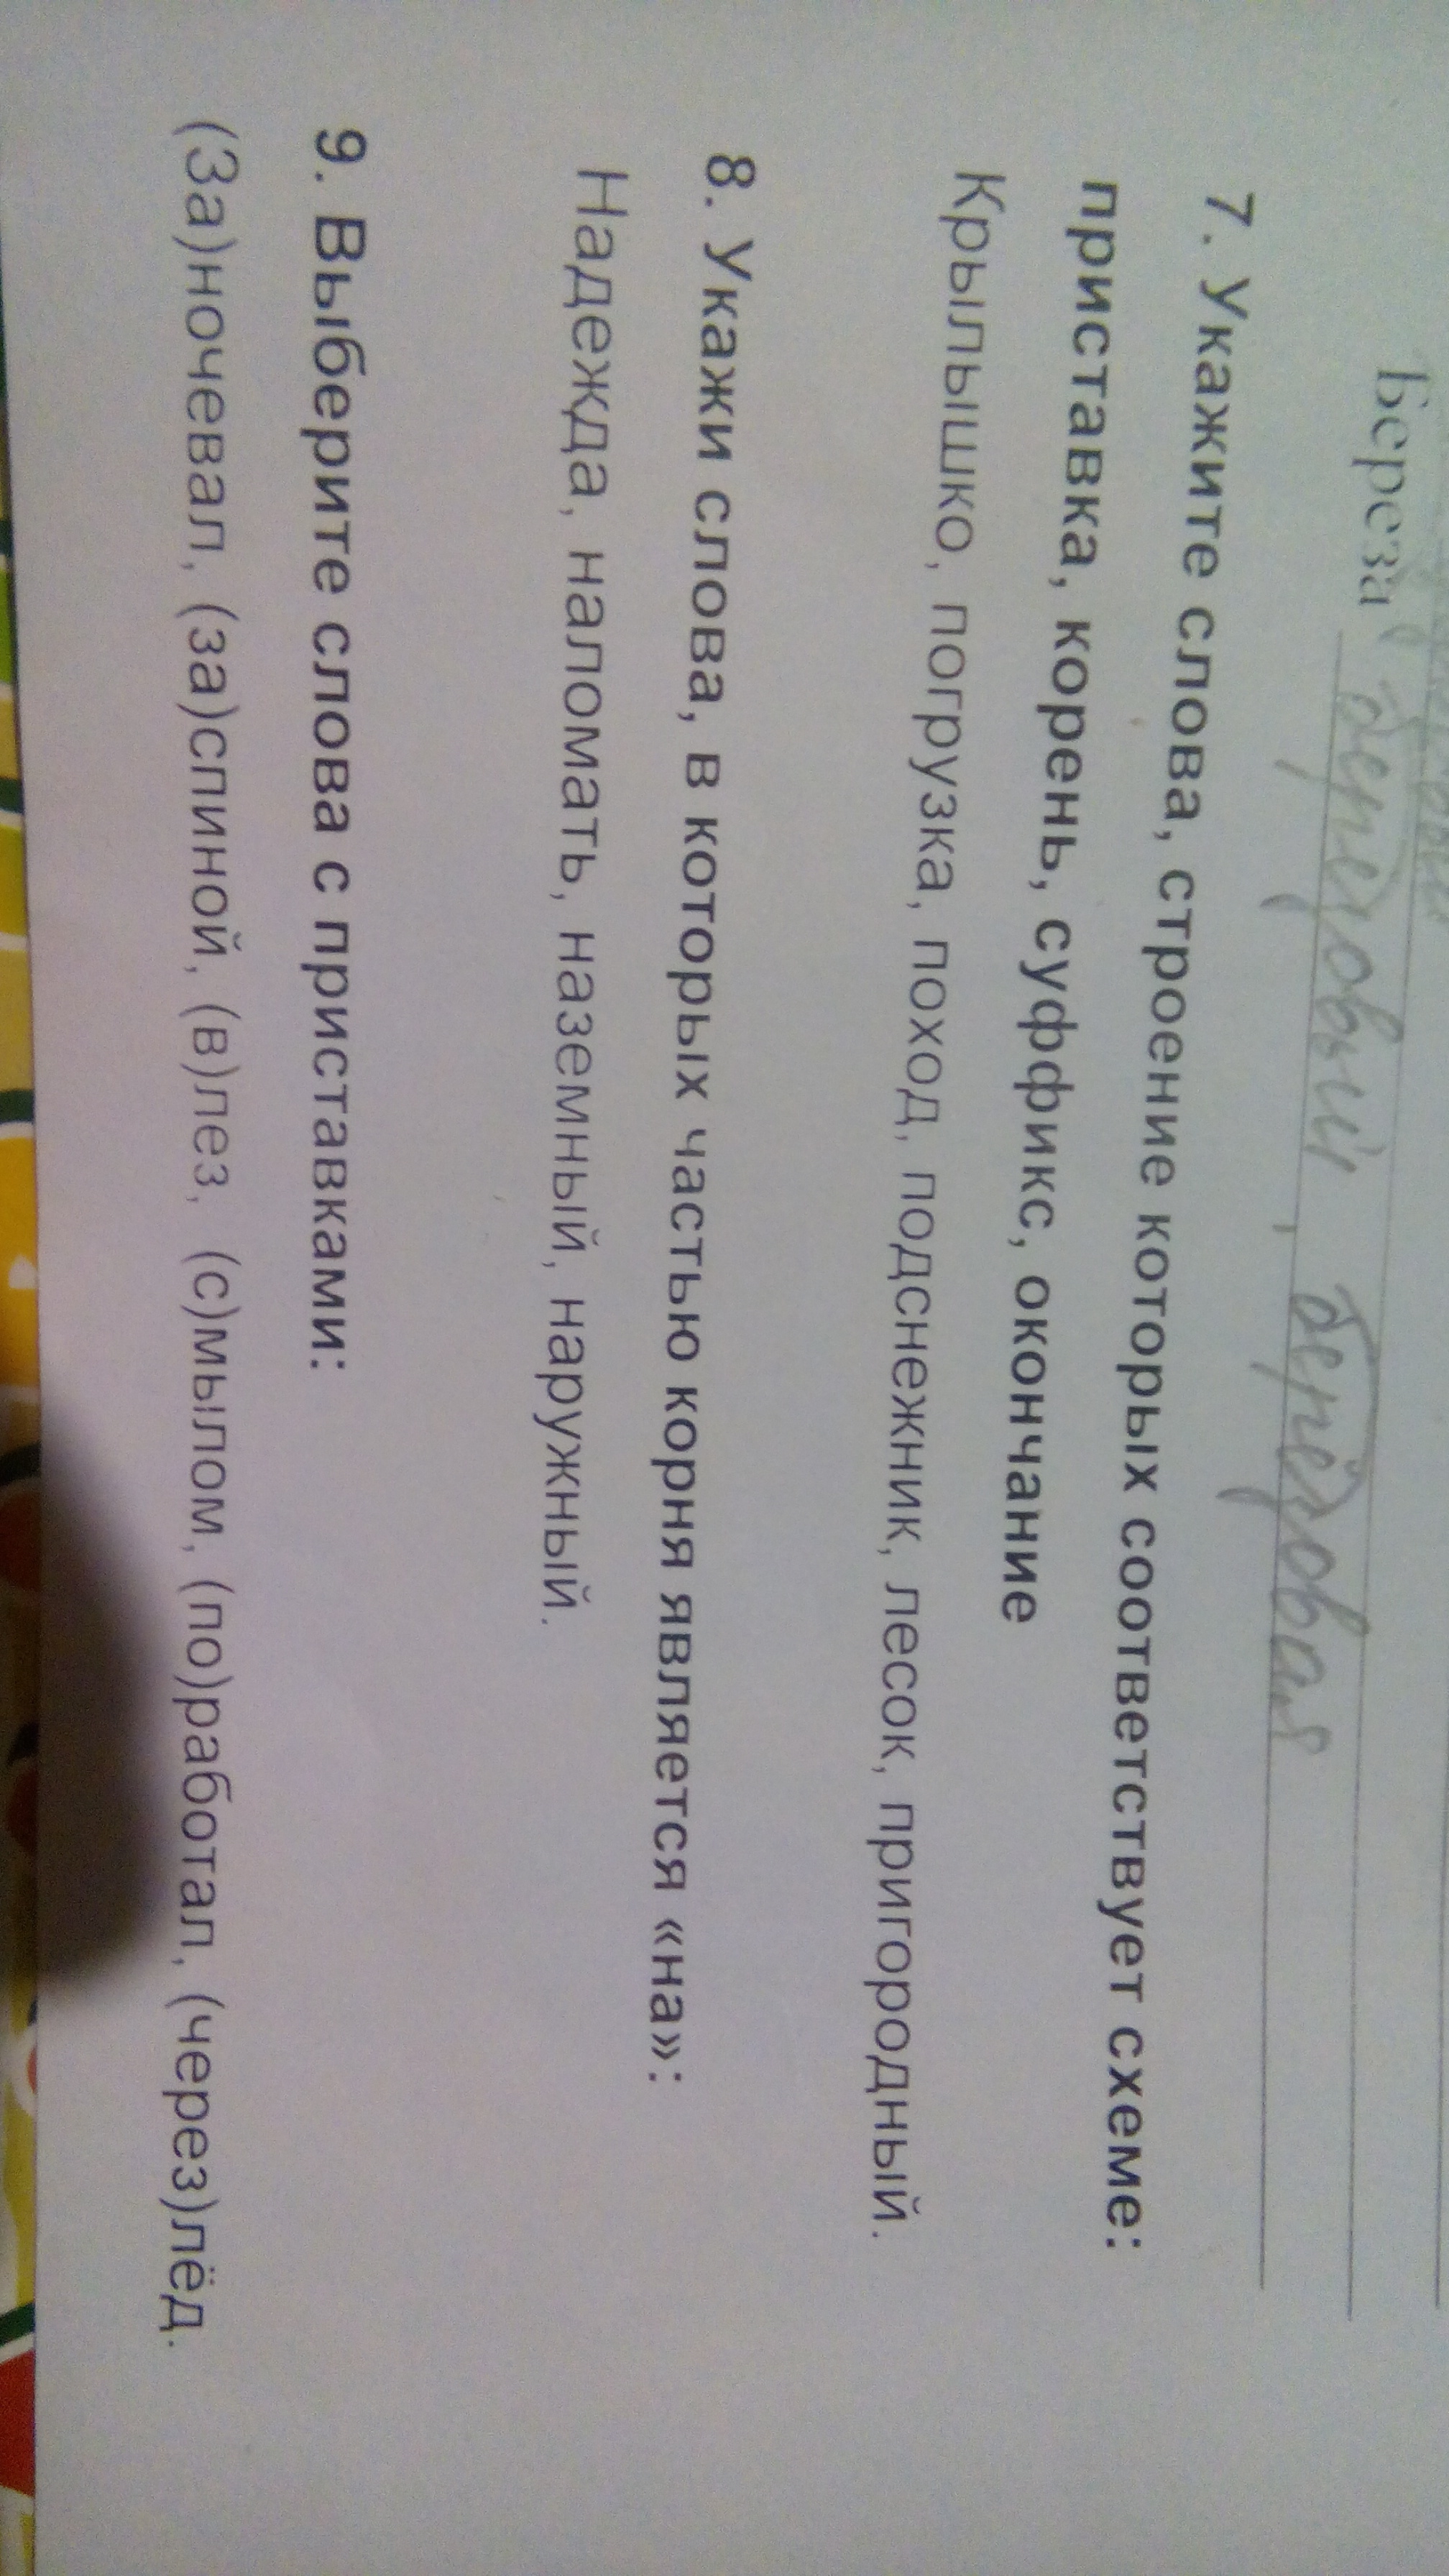 Береза берёзовый, берёзовая
7. Укажите слова, строение которых соответствует схеме:
приставка, корень, суффикс, окончание
Крылышко, погрузка, поход, подснежник, лесок, пригородный.
8. Укажи слова, в которых частью корня является «на»:
Надежда, наломать, наземный, наружный.
9. Выберите слова с приставками:
(За)ночевал, (за)спиной, (в)лез, (с)мылом, (по)работал, (через)лёд.